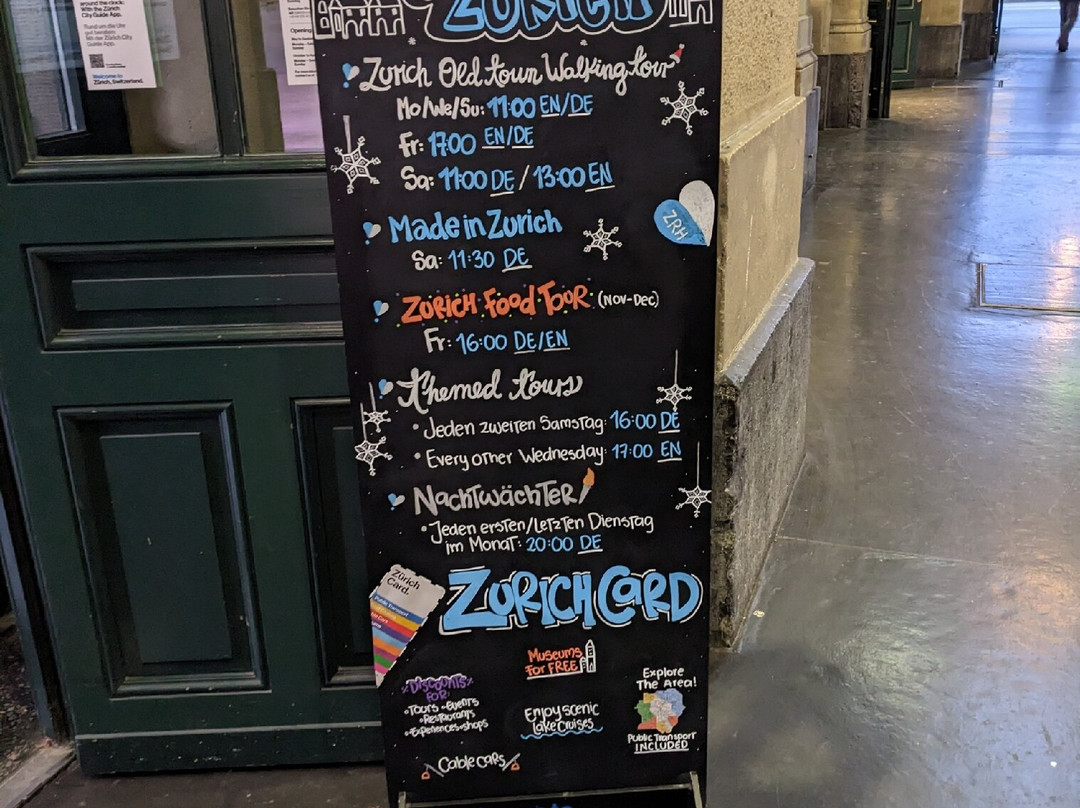 around the clock:
With the Zürich
City Guide App.
Rund um die Uhr
Guide App.
Welcome to
Zürich, Switzerland.
Opening
ZÜRICH
Zurich Old town Walking tour
Mo/We/Su: 11:00 EN/DE
Fr: 17:00 EN/DE
Sa: 11:00 DE / 13:00 EN
ZRH
Made in Zurich
Sa: 11:30 DE
ZURICH FOOD TOUR (NOV-DEC)
Fr: 16:00 DE/EN
Themed tours
• Jeden zweiten Samstag: 16:00 DE
• Every other Wednesday: 17:00 EN
NACHTWÄCHTER
• Jeden ersten/Letzten Dienstag
im Monat: 20:00 DE
Zürich
Card.
Public Transport
ZÜRICH CARD
Museums
For FREE
DISCOUNTS
FOR:
• Tours • Events
• Restaurants
• Experiences • Shops
Enjoy scenic
Lake Cruises
Explore
The Area!
Public Transport
INCLUDED
Cable cars